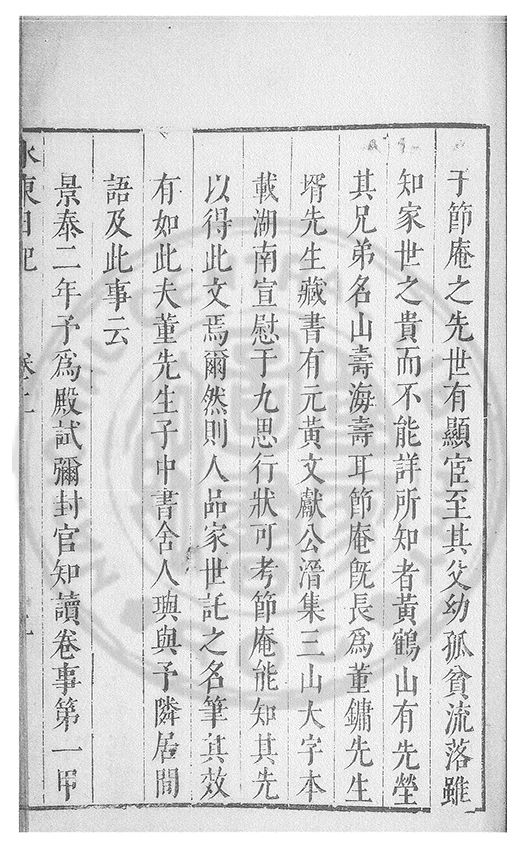 于節庵之先世有顯宦至其父幼孤貧流落雖
知家世之貴而不能詳所知者黃鶴山有先塋
其兄弟名山壽海壽耳節庵旣長爲董鏞先生
壻先生藏書有元黃文獻公溍集三山大字本
載湖南宣慰于九思行狀可考節庵能知其先
以得此文焉爾然則人品家世託之名筆其效
有如此夫董先生子中書舍人璵與予隣居間
語及此事云
景泰二年予爲殿試彌封官知讀卷事第一甲
水東日記